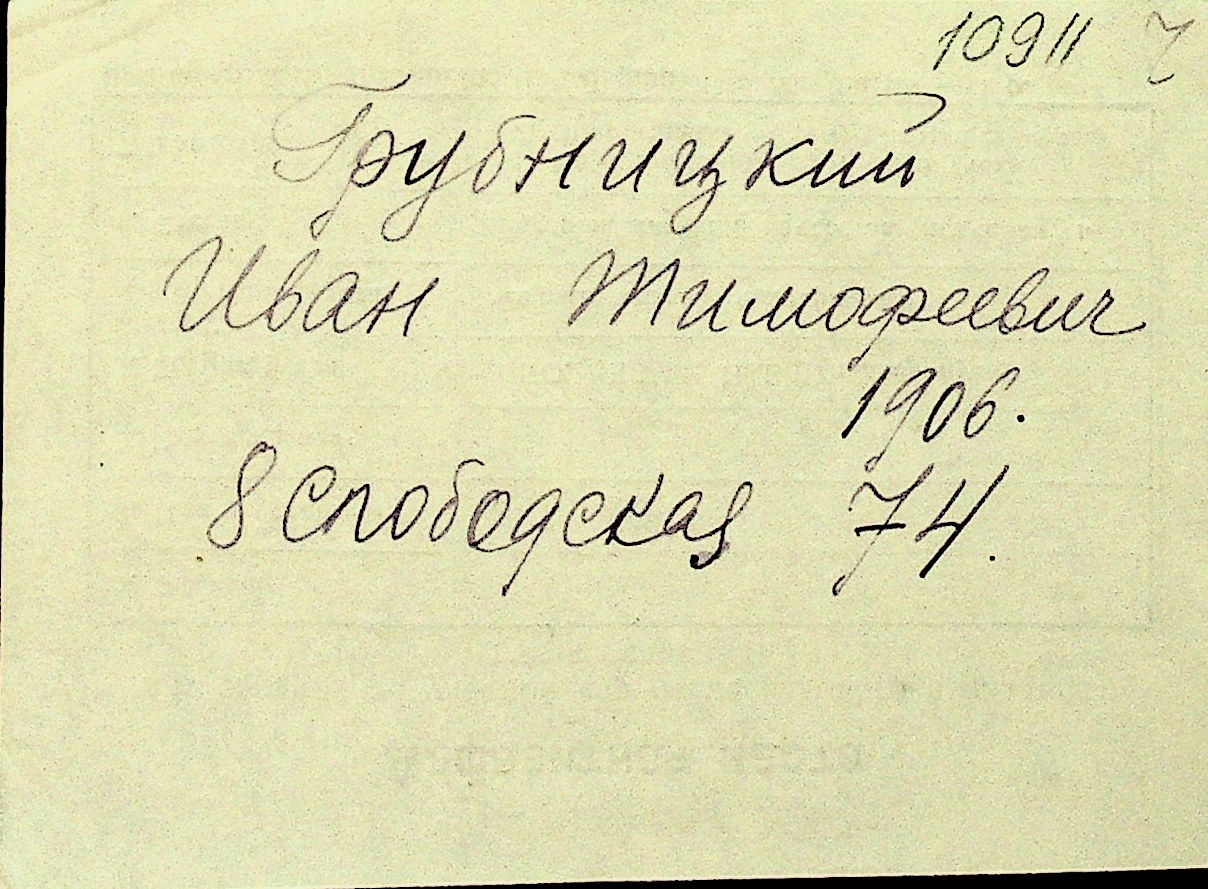 10911 7
Трубницкий
Иван Тимофеевич
1906.
8 Слободская 74.